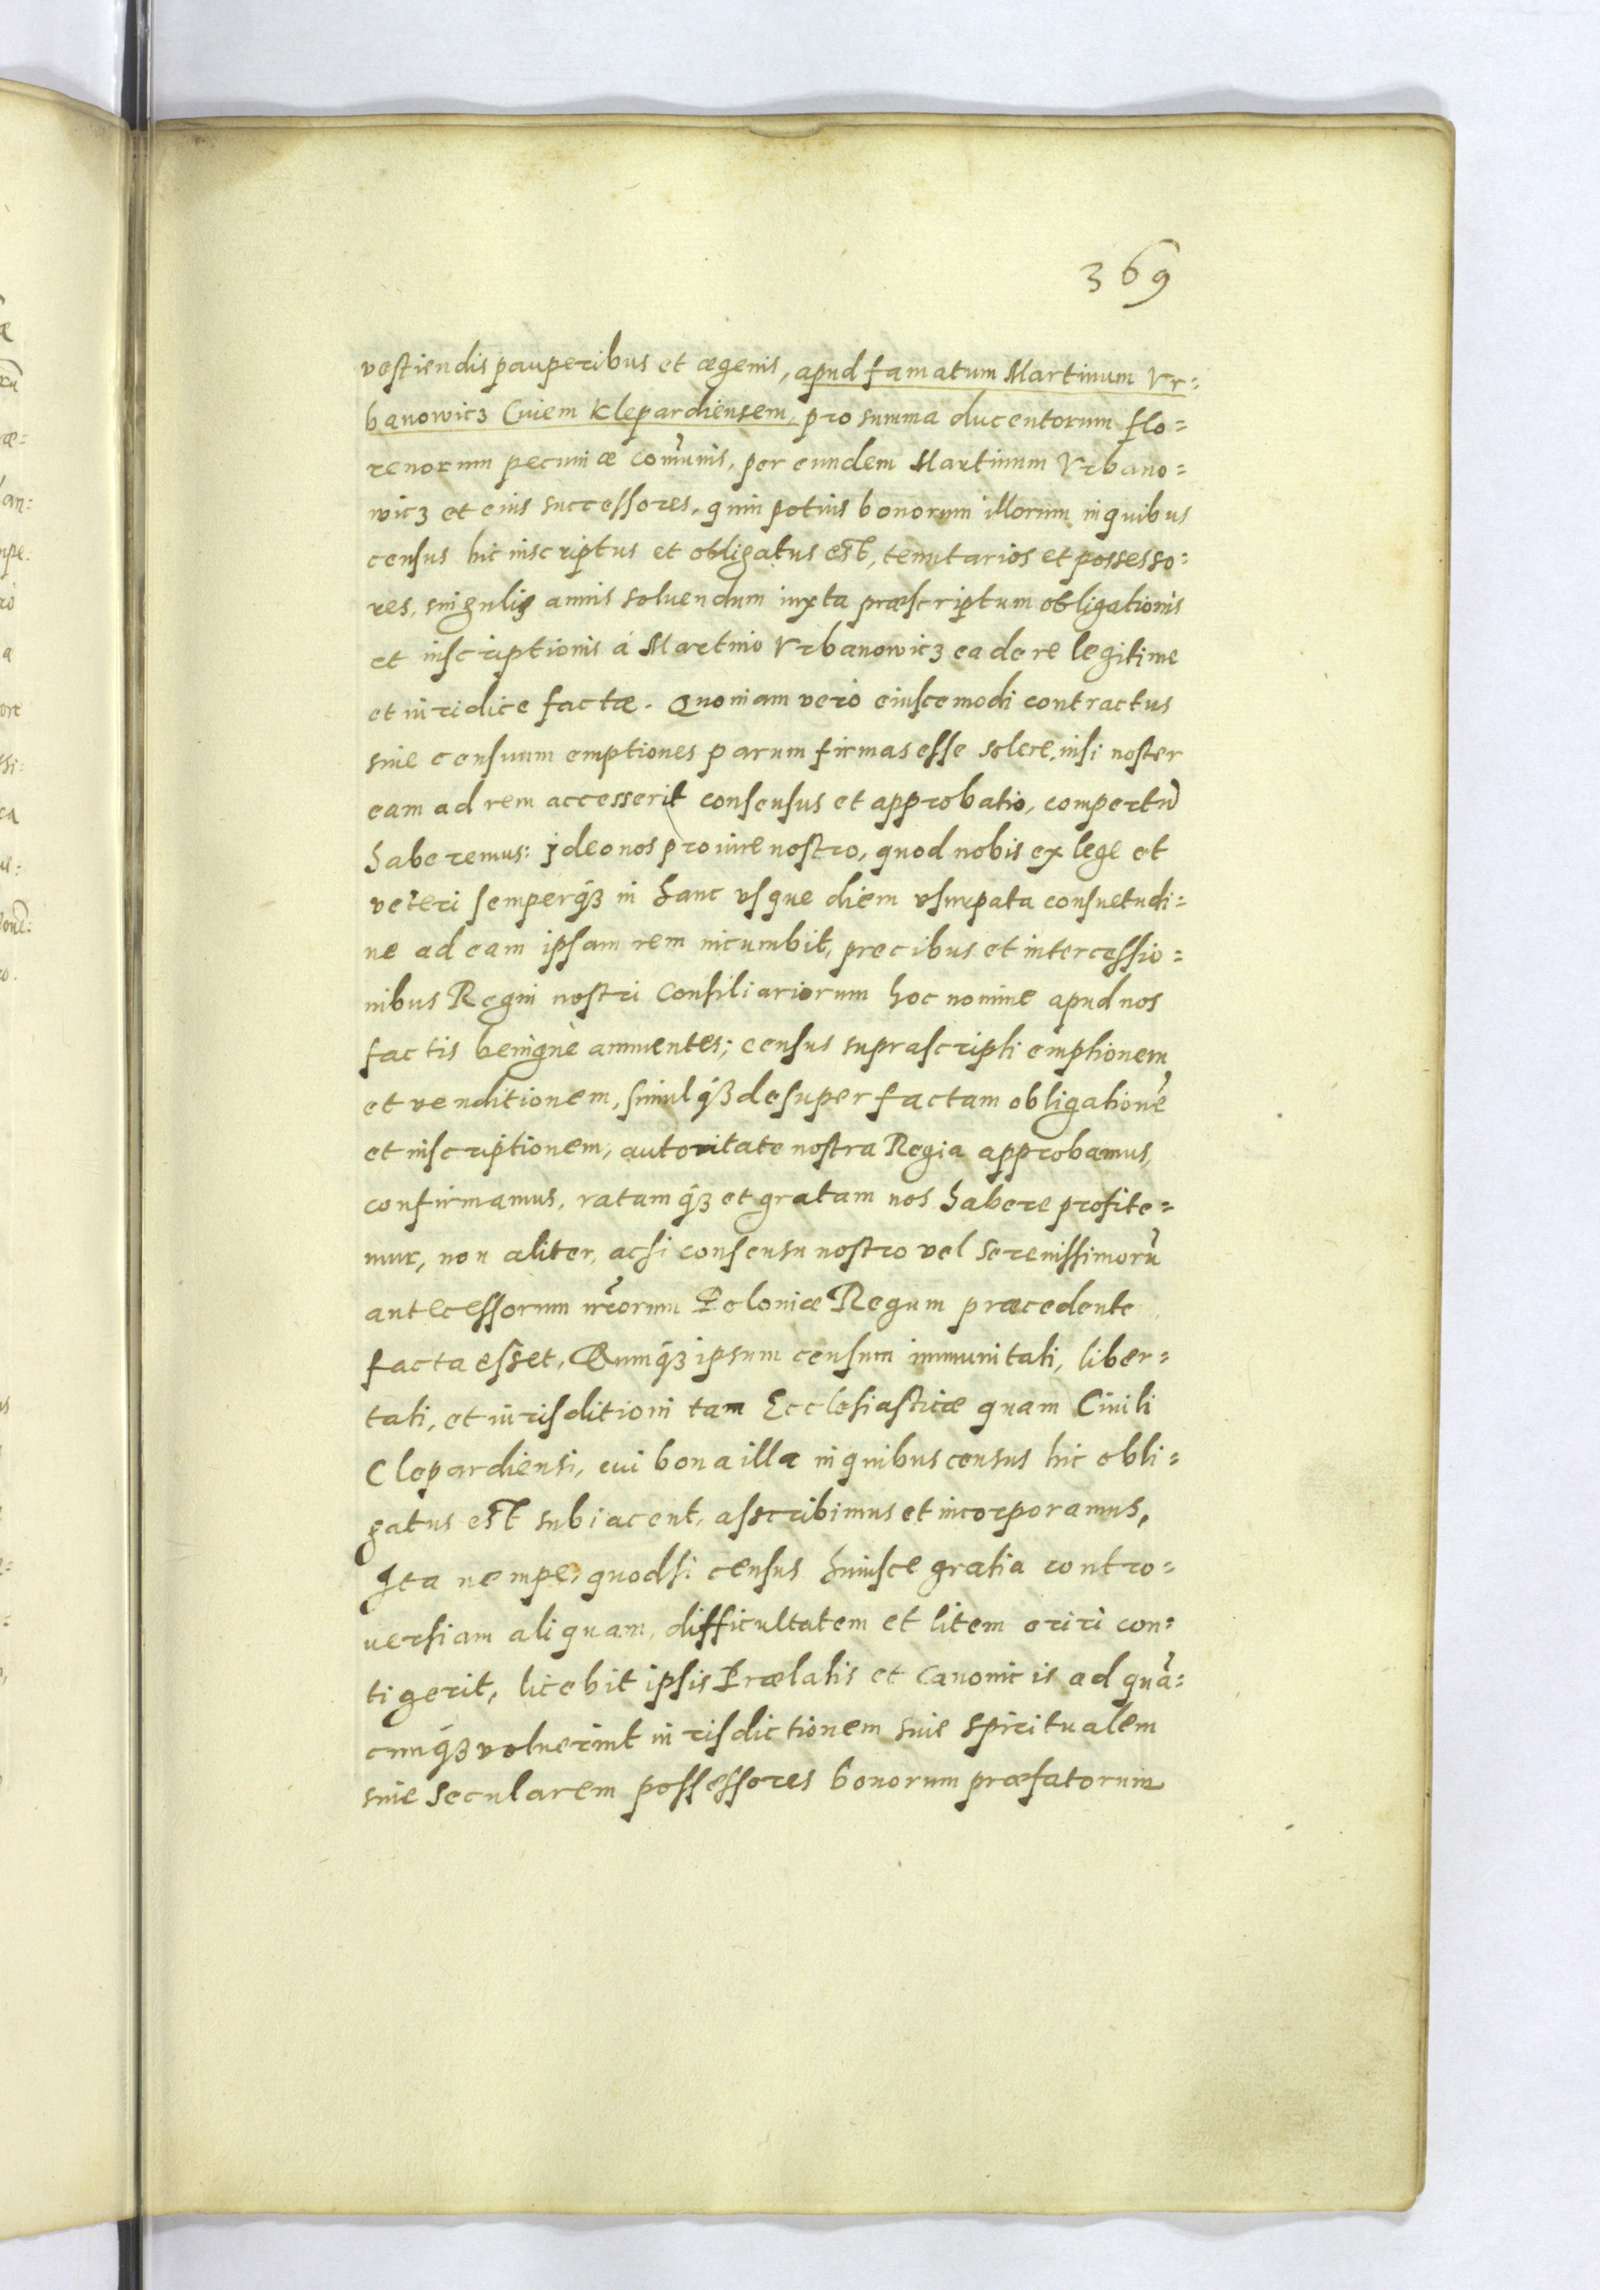 369
vestiendis pauperibus et ægenis, apud famatum Martinum Vr=
banowicz Ciuem Klepardiensem, pro summa ducentorum flo=
renorum pecuniæ com̃unis, per eundem Martinum Vrbano=
wicz et eius successores, quin potius bonorum illorum in quibus
census hic inscriptus et obligatus est, tenutarios et possesso=
res, singulis annis soluendum iuxta præscriptum obligationis
et inscriptionis á Martino Vrbanowicz ea de re legitime
et iuridice factæ. Quoniam verò eiuscemodi contractus
siue censuum emptiones parum firmas esse solere, nisi noster
eam ad rem accesserit consensus et approbatio, compertũ
haberemus: jdeo nos pro iure nostro, quod nobis ex lege et
veteri semperq́ꝫ in hanc vsque diem vsurpata consuetudi=
ne ad eam ipsam rem incumbit, precibus et intercessio=
nibus Regni nostri Consiliariorum hoc nomine apud nos
factis benignè annuentes; census suprascripti emptionem
et venditionem, simulq́ꝫ desuper factam obligationẽ
et inscriptionem, autoritate nostra Regia approbamus,
confirmamus, ratamq́ꝫ et gratam nos habere profite=
mur, non aliter, acsi consensu nostro vel Serenissimorũ
antecessorum nr̃orum Poloniæ Regum præcedente
facta esset, Eumq́ꝫ ipsum censum immunitati, liber=
tati, et iurisditioni tam Ecclesiasticæ quam Ciuili
Clepardiensi, cui bona illa in quibus census hic obli=
gatus est subiacent, asscribimus et incorporamus,
Ita nempe, quodsi census huiusce gratia contro=
uersiam aliquam, difficultatem et litem oriri con=
tigerit, licebit ipsis Prælatis et Canonicis ad quã=
cunq́ꝫ voluerint iurisdictionem siue spiritualem
siue secularem possessores bonorum præfatorum